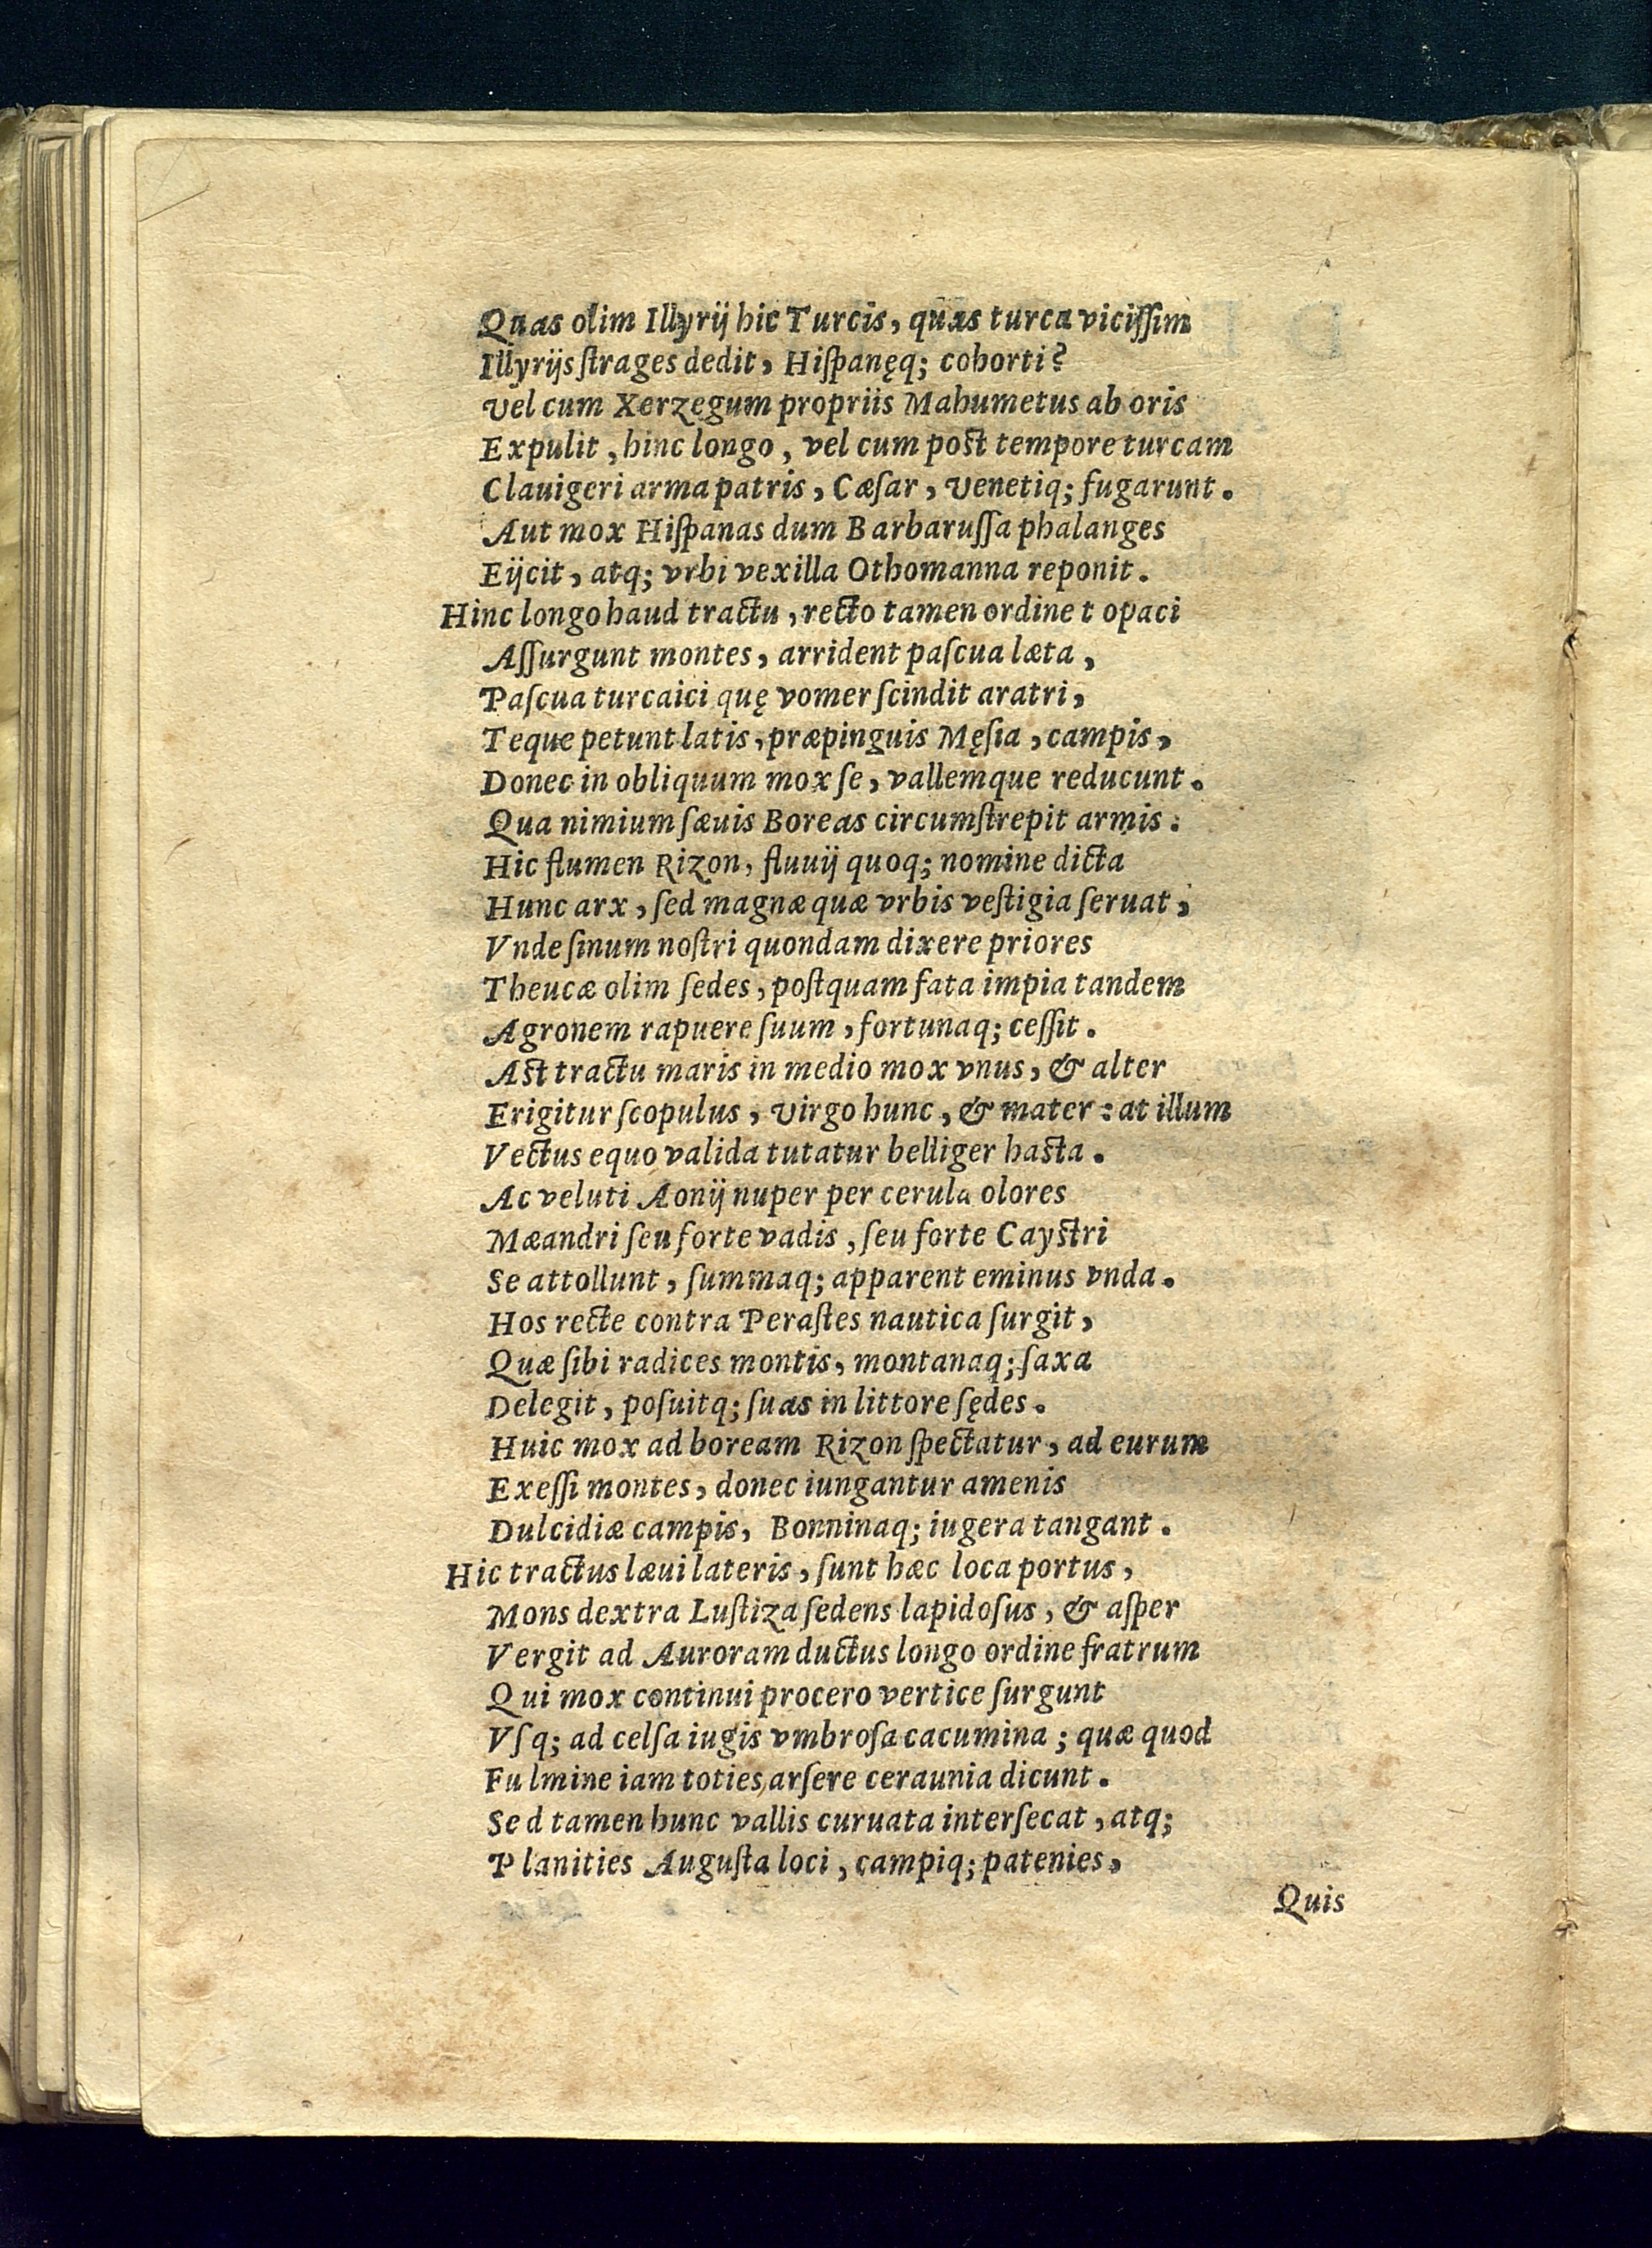 Quas olim Illyrij hic Turcis, quas turca vicißim
Illyrijs ſtrages dedit, Hiſpanęq; cohorti?
Vel cum Xerzegum propriis Mahumetus ab oris
Expulit, hinc longo, vel cum post tempore turcam
Clauigeri arma patris, Cæſar, Venetiq; fugarunt.
Aut mox Hiſpanas dum Barbaruſſa phalanges
Eijcit, atq; vrbi vexilla Othomanna reponit.
Hinc longo haud tractu, recto tamen ordine t opaci
Aſſurgunt montes, arrident paſcua læta,
Paſcua turcaici quę vomer ſcindit aratri,
Teque petunt latis, præpinguis Męſia, campis,
Donec in obliquum mox ſe, vallemque reducunt.
Qua nimium ſæuis Boreas circumſtrepit armis.
Hic flumen Rizon, fluuij quoq; nomine dicta
Hunc arx, ſed magnæ quæ vrbis veſtigia ſeruat,
Vnde ſinum noſtri quondam dixere priores
Theucæ olim ſedes, poſtquam fata impia tandem
Agronem rapuere ſuum, fortunaq; ceſſit.
Ast tractu maris in medio mox vnus, & alter
Erigitur ſcopulus, Virgo hunc, & mater: at illum
Vectus equo valida tutatur belliger hasta.
Ac veluti Aonij nuper per cerula olores
Mæandri ſeu forte vadis, ſeu forte Caystri
Se attollunt, ſummaq; apparent eminus vnda.
Hos recte contra Peraſtes nautica ſurgit,
Quæ ſibi radices montis, montanaq; ſaxa
Delegit, poſuitq; ſuas in littore ſędes.
Huic mox ad boream Rizon ſpectatur, ad eurum
Exeſſi montes, donec iungantur amenis
Dulcidiæ campis, Bonninaq; iugera tangant.
Hic tractus læui lateris, ſunt hæc loca portus,
Mons dextra Luſtiza ſedens lapidoſus, & aſper
Vergit ad Auroram ductus longo ordine fratrum
Qui mox continui procero vertice ſurgunt
Vſq; ad celſa iugis vmbroſa cacumina; quæ quod
Fulmine iam toties, arſere ceraunia dicunt.
Sed tamen hunc vallis curuata interſecat, atq;
Planities Auguſta loci, campiq; patenies,
Quis